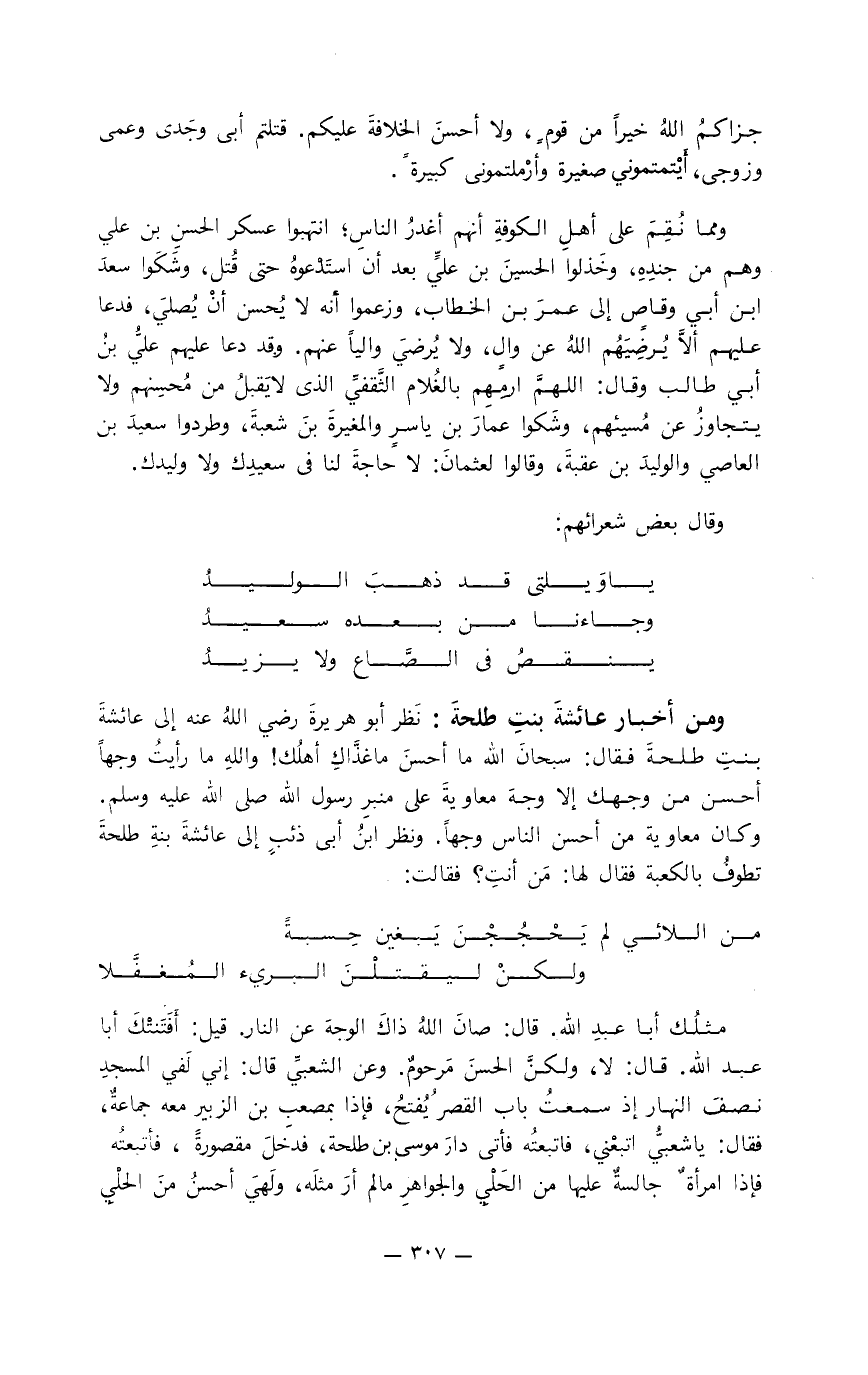 جزاكمُ اللهُ خيراً من قومٍ، ولا أحسنَ الخلافةَ عليكم. قتلتم أبى وجَدى وعمى
وزوجى، أَيْتمتموني صغيرة وأرْملتمونى كبيرةً.
ومما نُقِمَ على أهلِ الكوفةِ أنهم أغدرُ الناسِ؛ انتهبوا عسكر الحسنِ بن علي
وهم من جندِهِ، وخَذلوا الحسينَ بن عليٍّ بعد أن استَدْعوهُ حتى قُتل، وشَكَوا سعدَ
ابن أبي وقاصٍ إلى عمرَ بن الخطاب، وزعموا أنه لا يُحسن أنْ يُصليَ، فدعا
عليهم ألاَّ يُرضِيَهُم اللهُ عن والٍ، ولا يُرضيَ والياً عنهم. وقد دعا عليهم عليُّ بنُ
أبي طالب وقال: اللهمَّ ارمِهِم بالغُلام الثَّقفيِّ الذى لايَقبلُ من مُحسِنهم ولا
يتجاوزُ عن مُسيئهم، وشَكوا عمارَ بن ياسرٍ والمغيرةَ بنَ شعبةَ، وطردوا سعيدَ بن
العاصي والوليدَ بن عقبةَ، وقالوا لعثمانَ: لا حاجةَ لنا فى سعيدِك ولا وليدك.
وقال بعض شعرائهم:
ياوَيلتى قد ذهبَ الوليدُ
وجاءنا من بعده سعيدُ
ينقصُ فى الصَّاع ولا يزيدُ
ومن أخبار عائشةَ بنتِ طلحةَ : نَظر أبو هريرةَ رضي اللهُ عنه إلى عائشةَ
بنتِ طلحةَ فقال: سبحانَ الله ما أحسنَ ماغذَّاكِ أهلُك! واللهِ ما رأيتُ وجهاً
أحسن من وجهك إلا وجهَ معاويةَ على منبرِ رسول الله صلى الله عليه وسلم.
وكان معاوية من أحسن الناس وجهاً. ونظر ابنُ أبى ذئبٍ إلى عائشةَ بنةِ طلحةَ
تطوفُ بالكعبة فقال لها: مَن أنتِ؟ فقالت:
من اللائي لم يَحْجُجْنَ يَبغين حِسبةً
ولكنْ ليقتلْنَ البريء المُغفَّلا
مثلُك أبا عبدِ الله. قال: صانَ اللهُ ذاكَ الوجهَ عن النار. قيل: أَفَتَنتْكَ أبا
عبد الله. قال: لا، ولكنَّ الحسنَ مَرحومٌ. وعن الشعبيِّ قال: إني لَفي المسجدِ
نصفَ النهار إذ سمعتُ باب القصر يُفتحُ، فإذا بمصعبِ بن الزبير معه جماعةٌ،
فقال: ياشعبيُّ اتبعْني، فاتبعتُه فأتى دارَ موسى بن طلحة، فدخلَ مقصورةً ، فأتبعتُه
فإذا امرأةٌ جالسةٌ عليها من الحَلْي والجواهرِ مالم أرَ مثلَه، ولَهيَ أحسنُ منَ الحلْي
— ٣٠٧ —